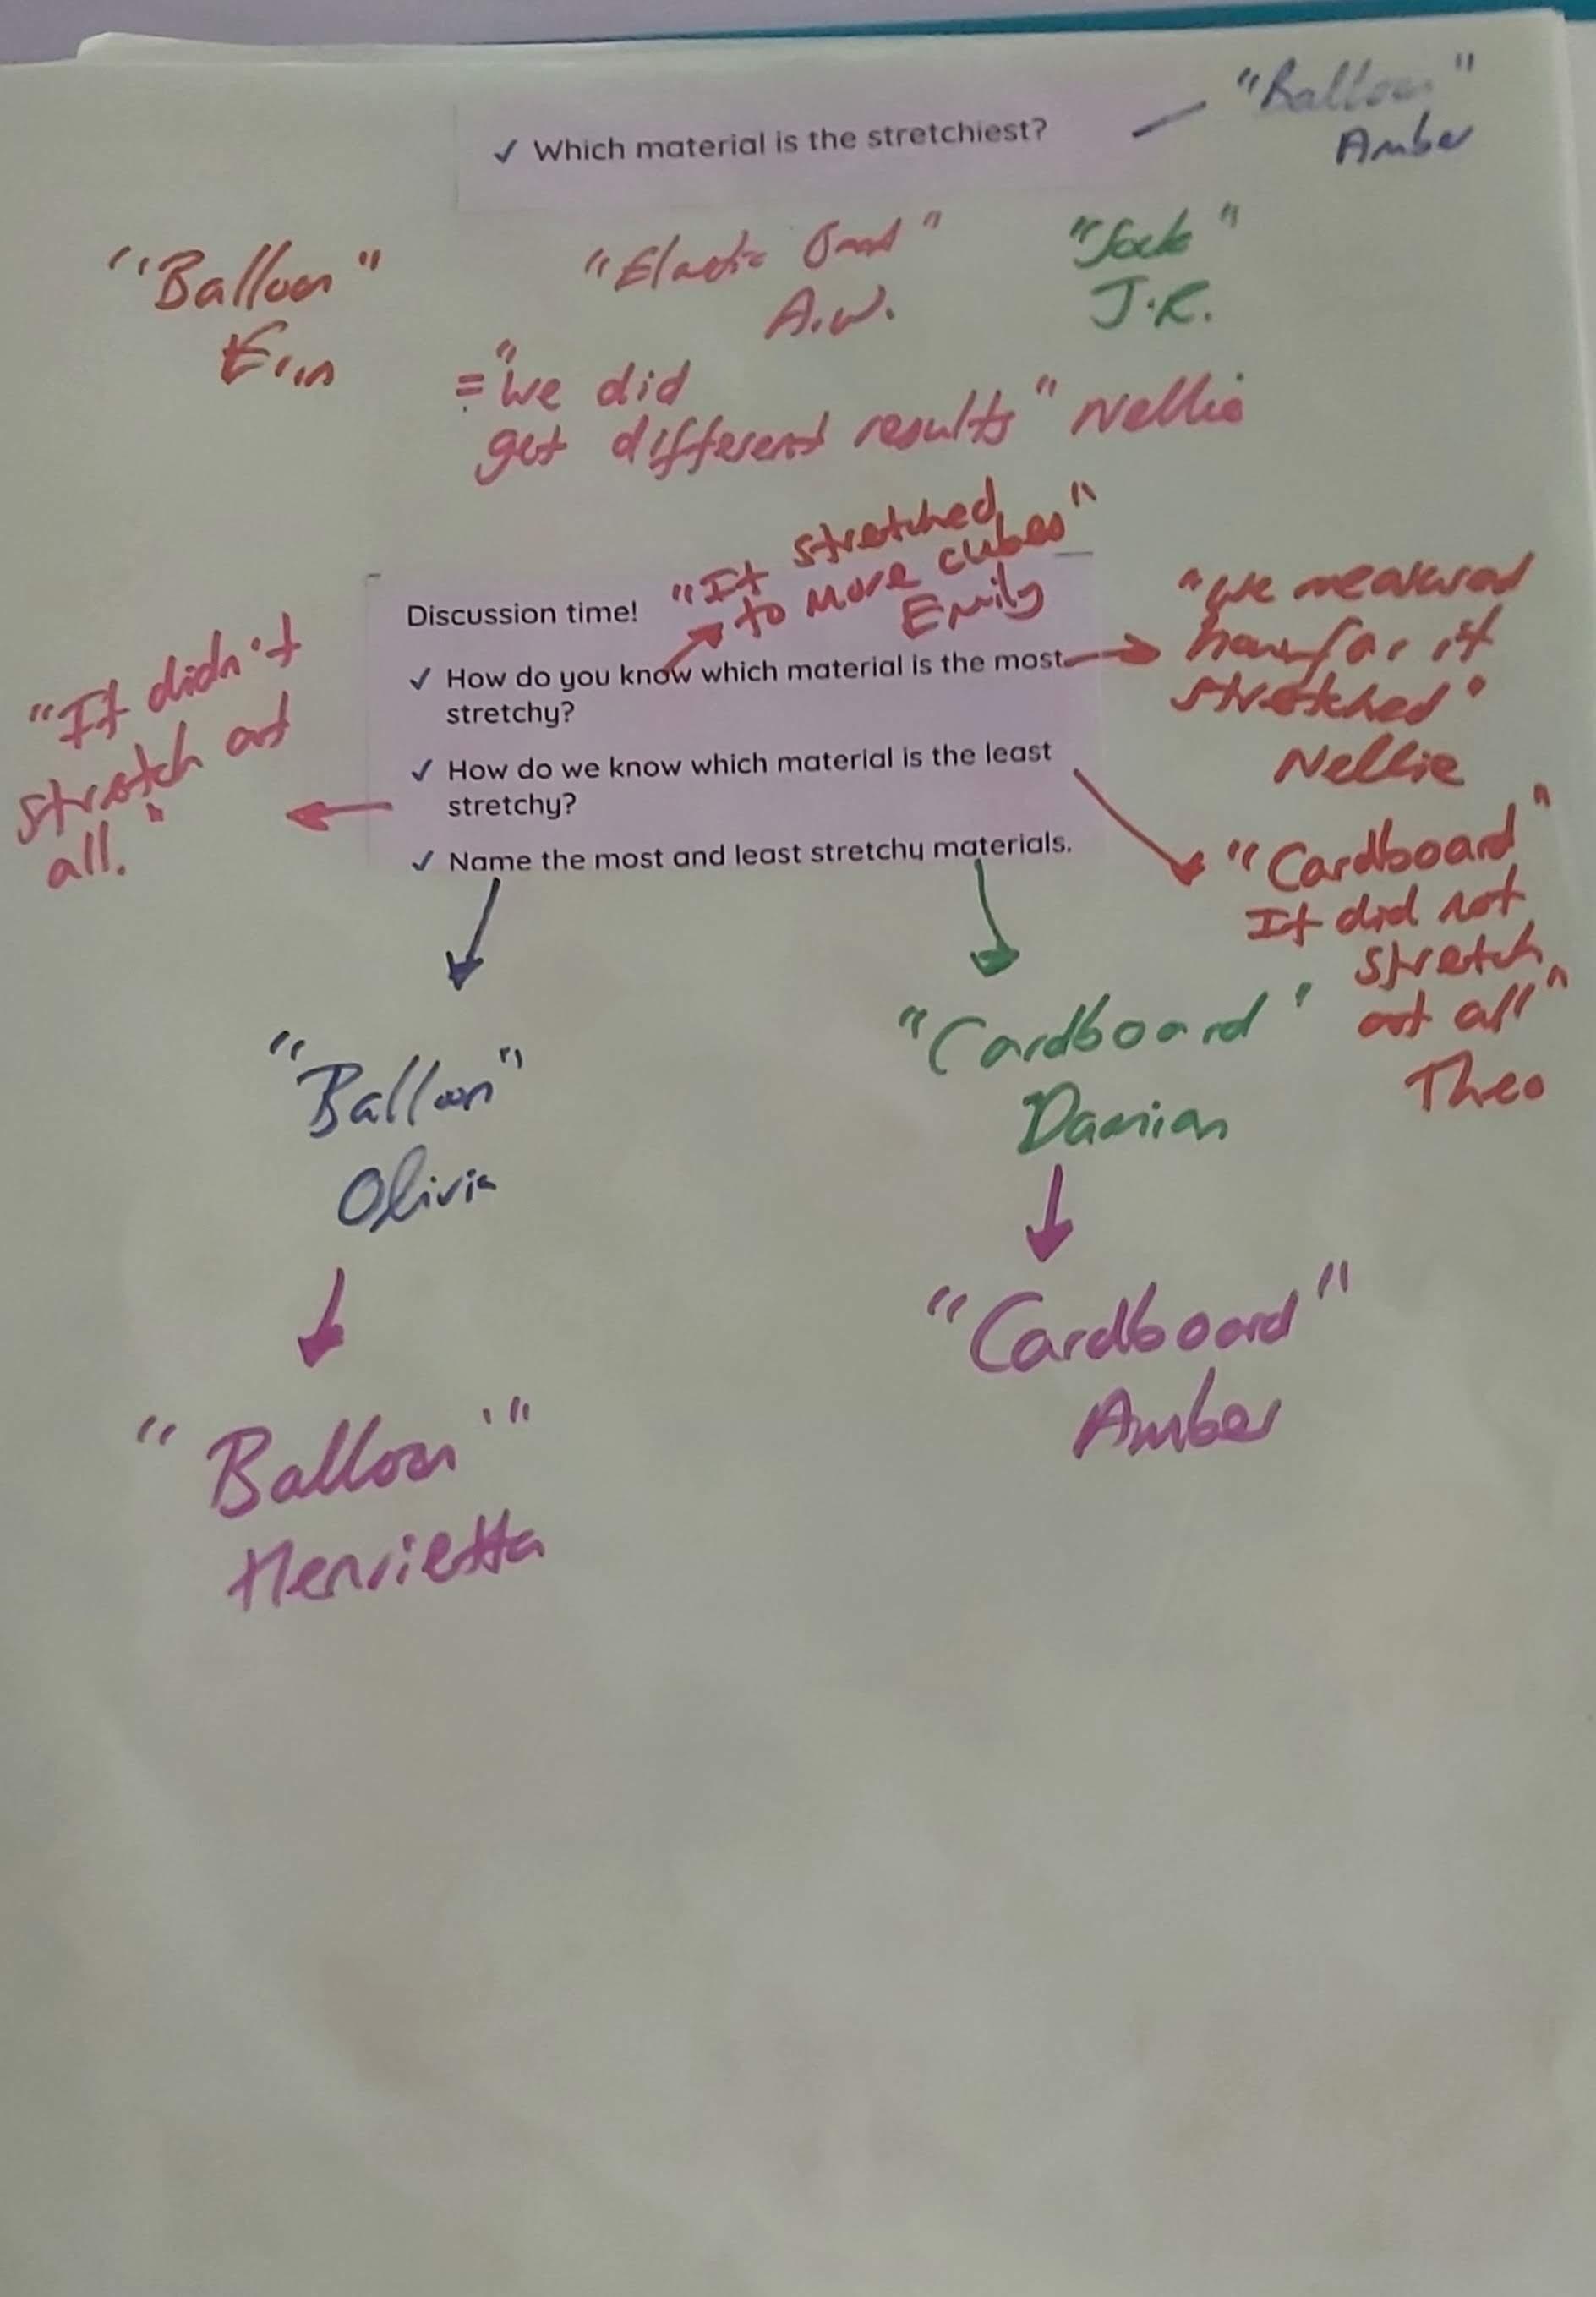 ✓ Which material is the stretchiest?
"Balloon"
Amber
"Balloon"
Erin
"Elastic Band"
A.W.
"Sock"
J.R.
= "We did
get different results" Nellie
"It stretched
to more cubes"
Emily
Discussion time!
✓ How do you know which material is the most
stretchy?
✓ How do we know which material is the least
stretchy?
✓ Name the most and least stretchy materials.
"We measured
how far it
stretched"
Nellie
"It didn't
stretch at
all."
"Cardboard"
It did not
stretch
at all"
Theo
"Balloon"
Olivia
"Cardboard"
Damian
"Balloon"
Henrietta
"Cardboard"
Amber